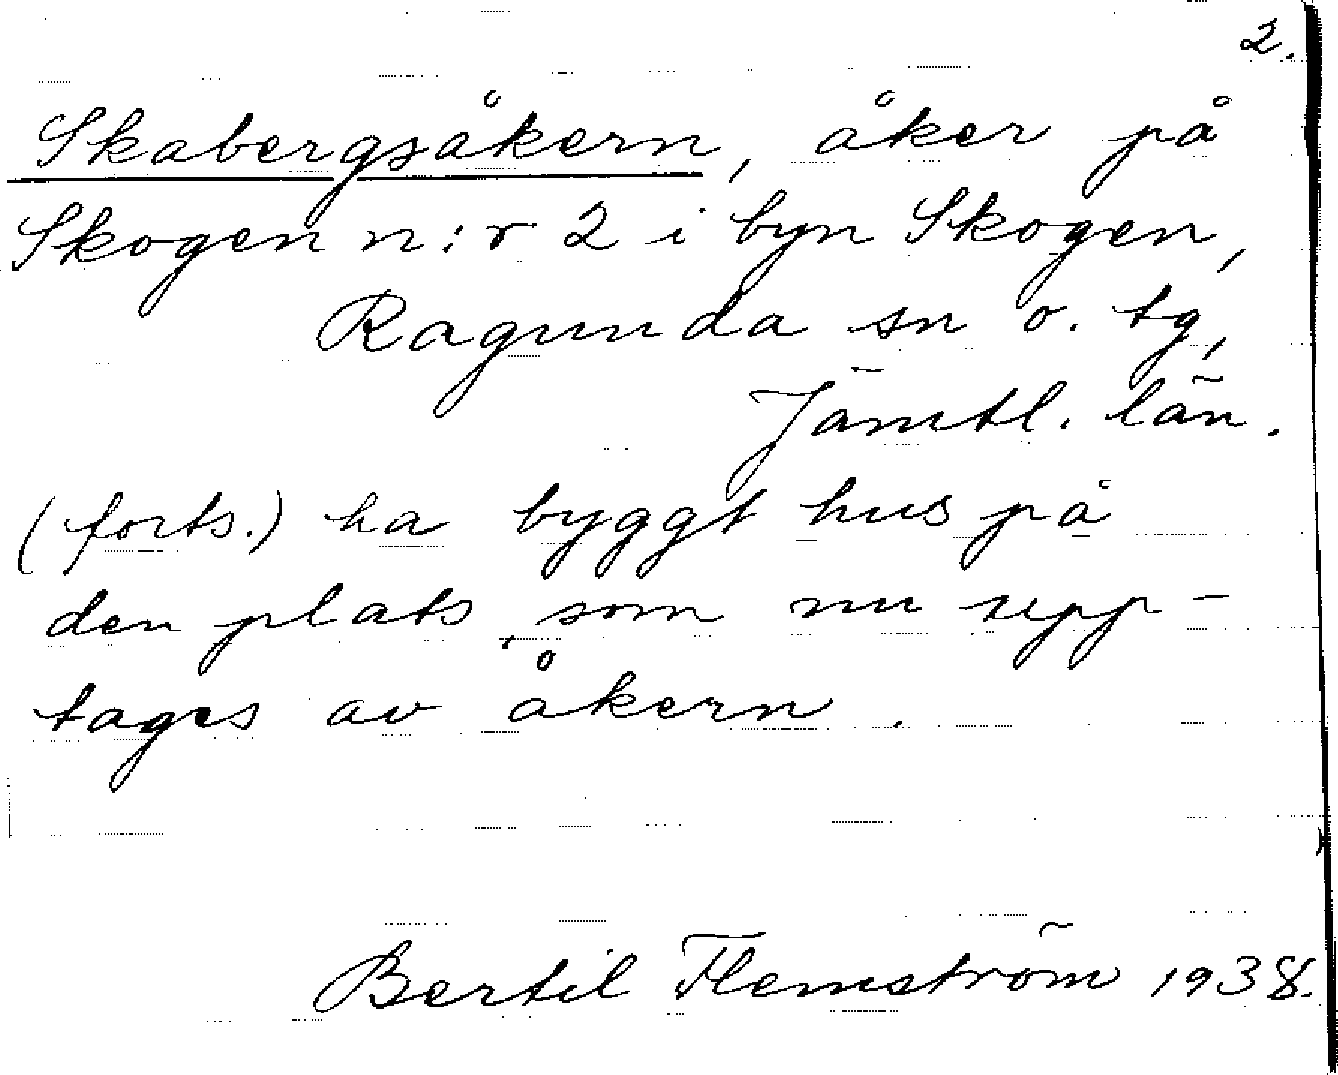 2.
Skabergsåkern, åker på
Skogen n:r 2 i byn Skogen,
Ragunda sn o. tg,
Jämtl. län.
(forts.) ha byggt hus på
den plats, som nu upp-
tages av åkern.
Bertil Flemström 1938.